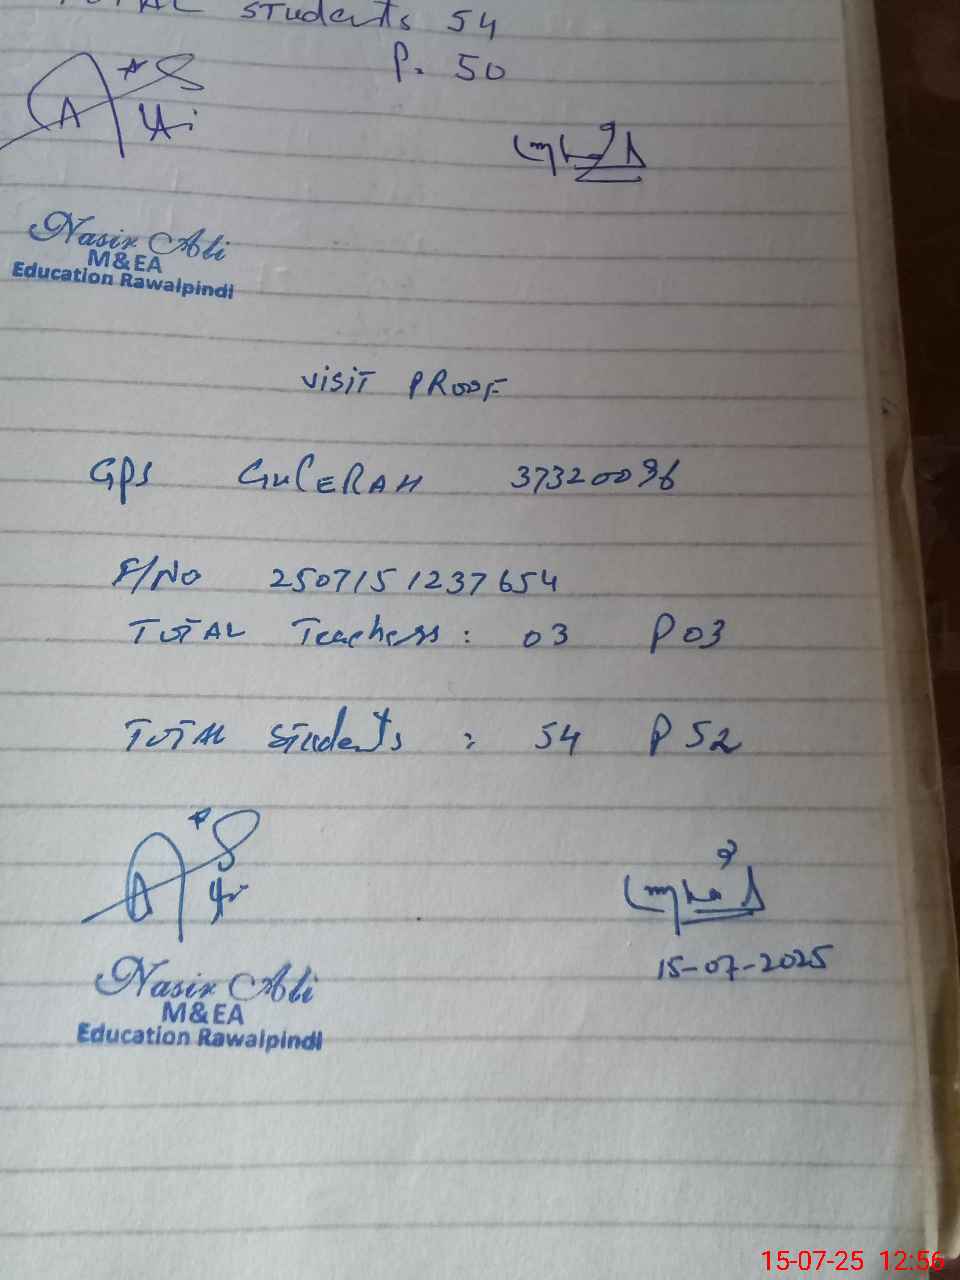 TOTAL Students 54
P. 50
Nasir Ali
M&EA
Education Rawalpindi
VISIT PROOF
GPS GULERAH 37320096
F/NO 2507151237654
TOTAL Teachers: 03 P 03
TOTAL Students : 54 P 52
15-07-2025
Nasir Ali
M&EA
Education Rawalpindi
15-07-25 12:56